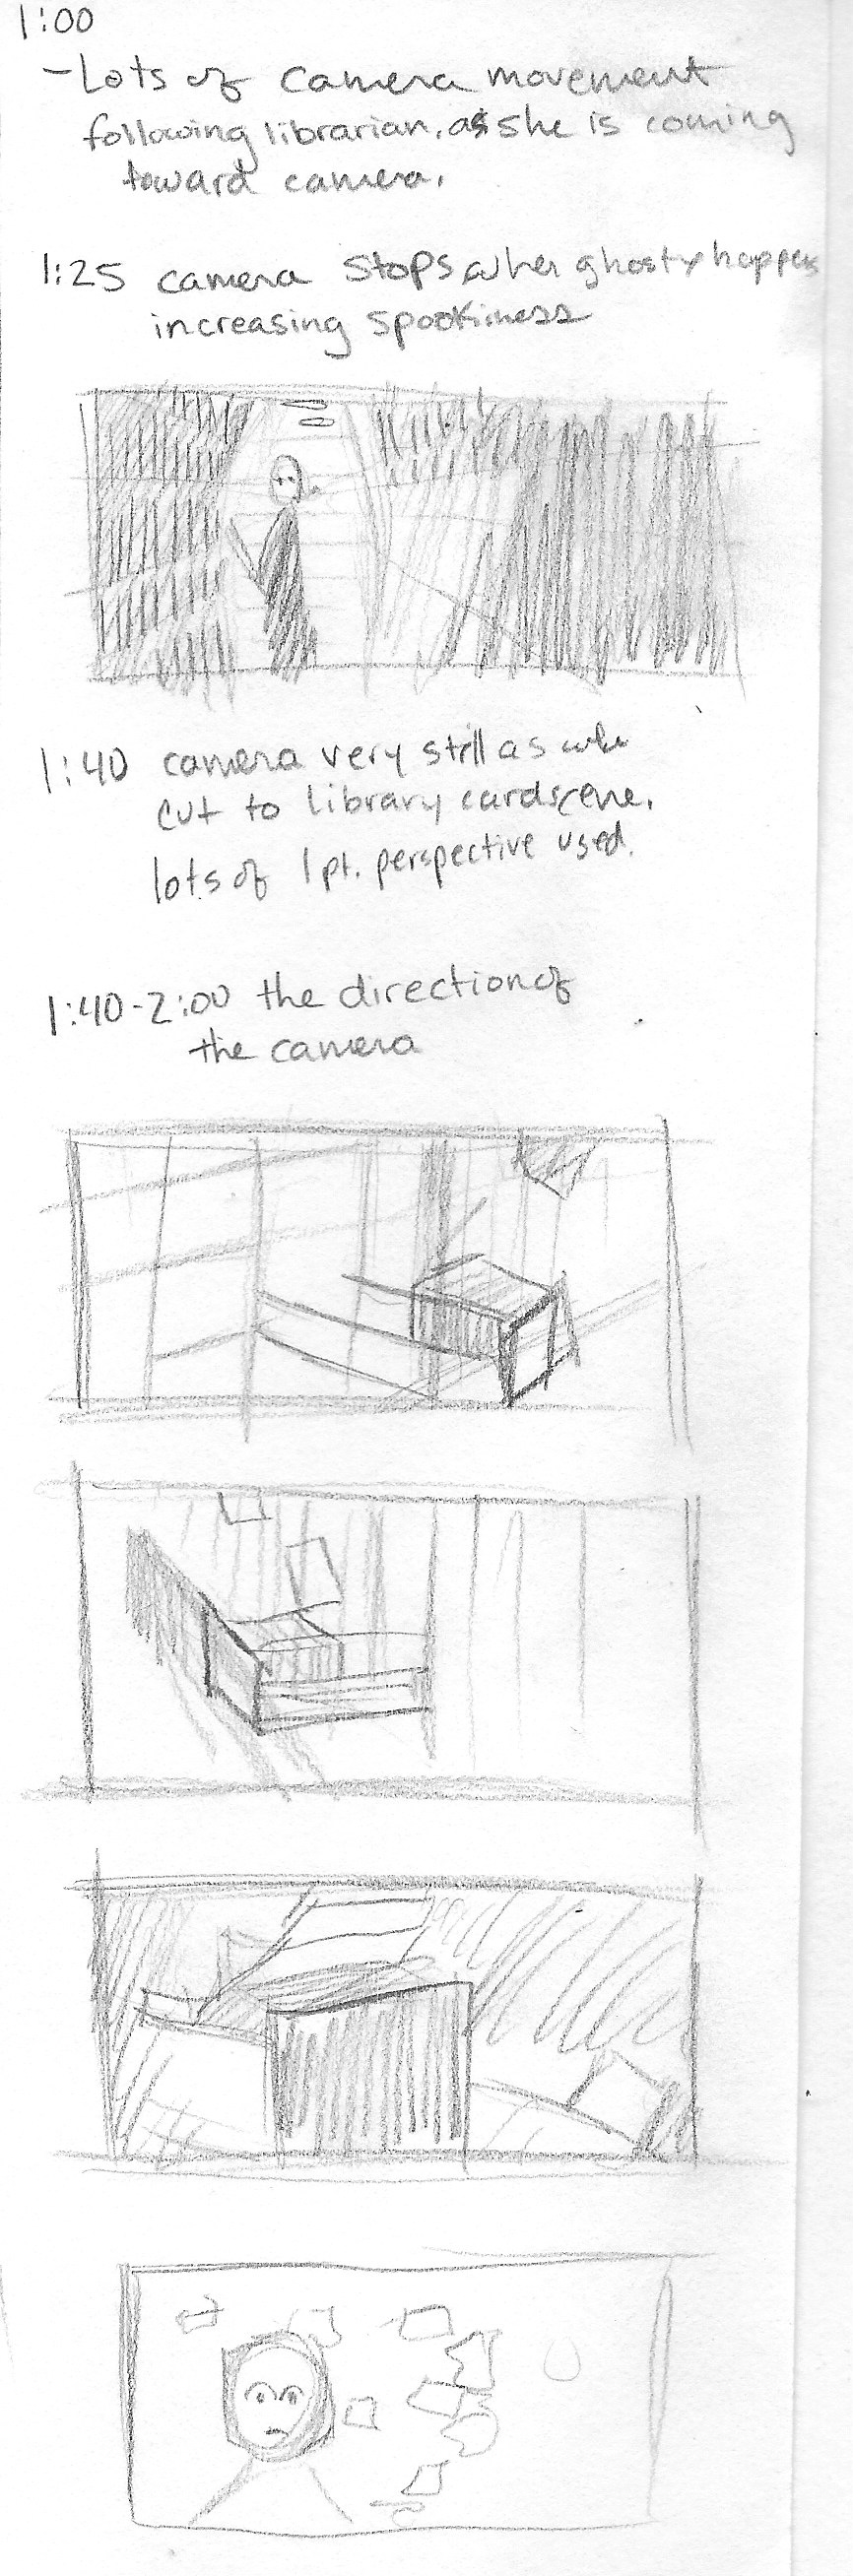 1:00
- Lots of camera movement
following librarian, as she is coming
toward camera.
1:25 camera stops when ghosty happens
increasing spookiness
1:40 camera very still as
cut to library card scene.
lots of 1 pt. perspective used.
1:40-2:00 the direction of
the camera